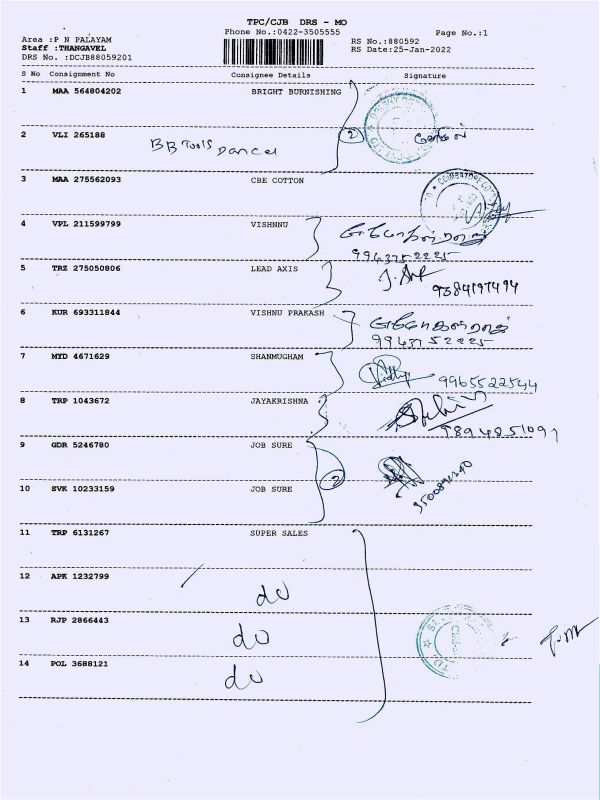 TPC/CJB DRS - MO
Phone No.:0422-3505555
Page No.:1
Area :P N PALAYAM
Staff :THANGAVEL
DRS No. :DCJB88059201
RS No.:880592
RS Date:25-Jan-2022
S No Consignment No Consignee Details Signature
1 MAA 564804202 BRIGHT BURNISHING
2 VLI 265188
BB Tools
2
3 MAA 275562093 CBE COTTON
4 VPL 211599799 VISHNNU
9943752225
5 TRZ 275050806 LEAD AXIS
9384197494
6 KUR 693311844 VISHNU PRAKASH
9943752225
7 MYD 4671629 SHANMUGHAM
9965522544
8 TRP 1043672 JAYAKRISHNA
9894851091
9 GDR 5246780 JOB SURE
2
10 SVK 10233159 JOB SURE
11 TRP 6131267 SUPER SALES
12 APK 1232799
do
13 RJP 2866443
do
14 POL 3688121
do